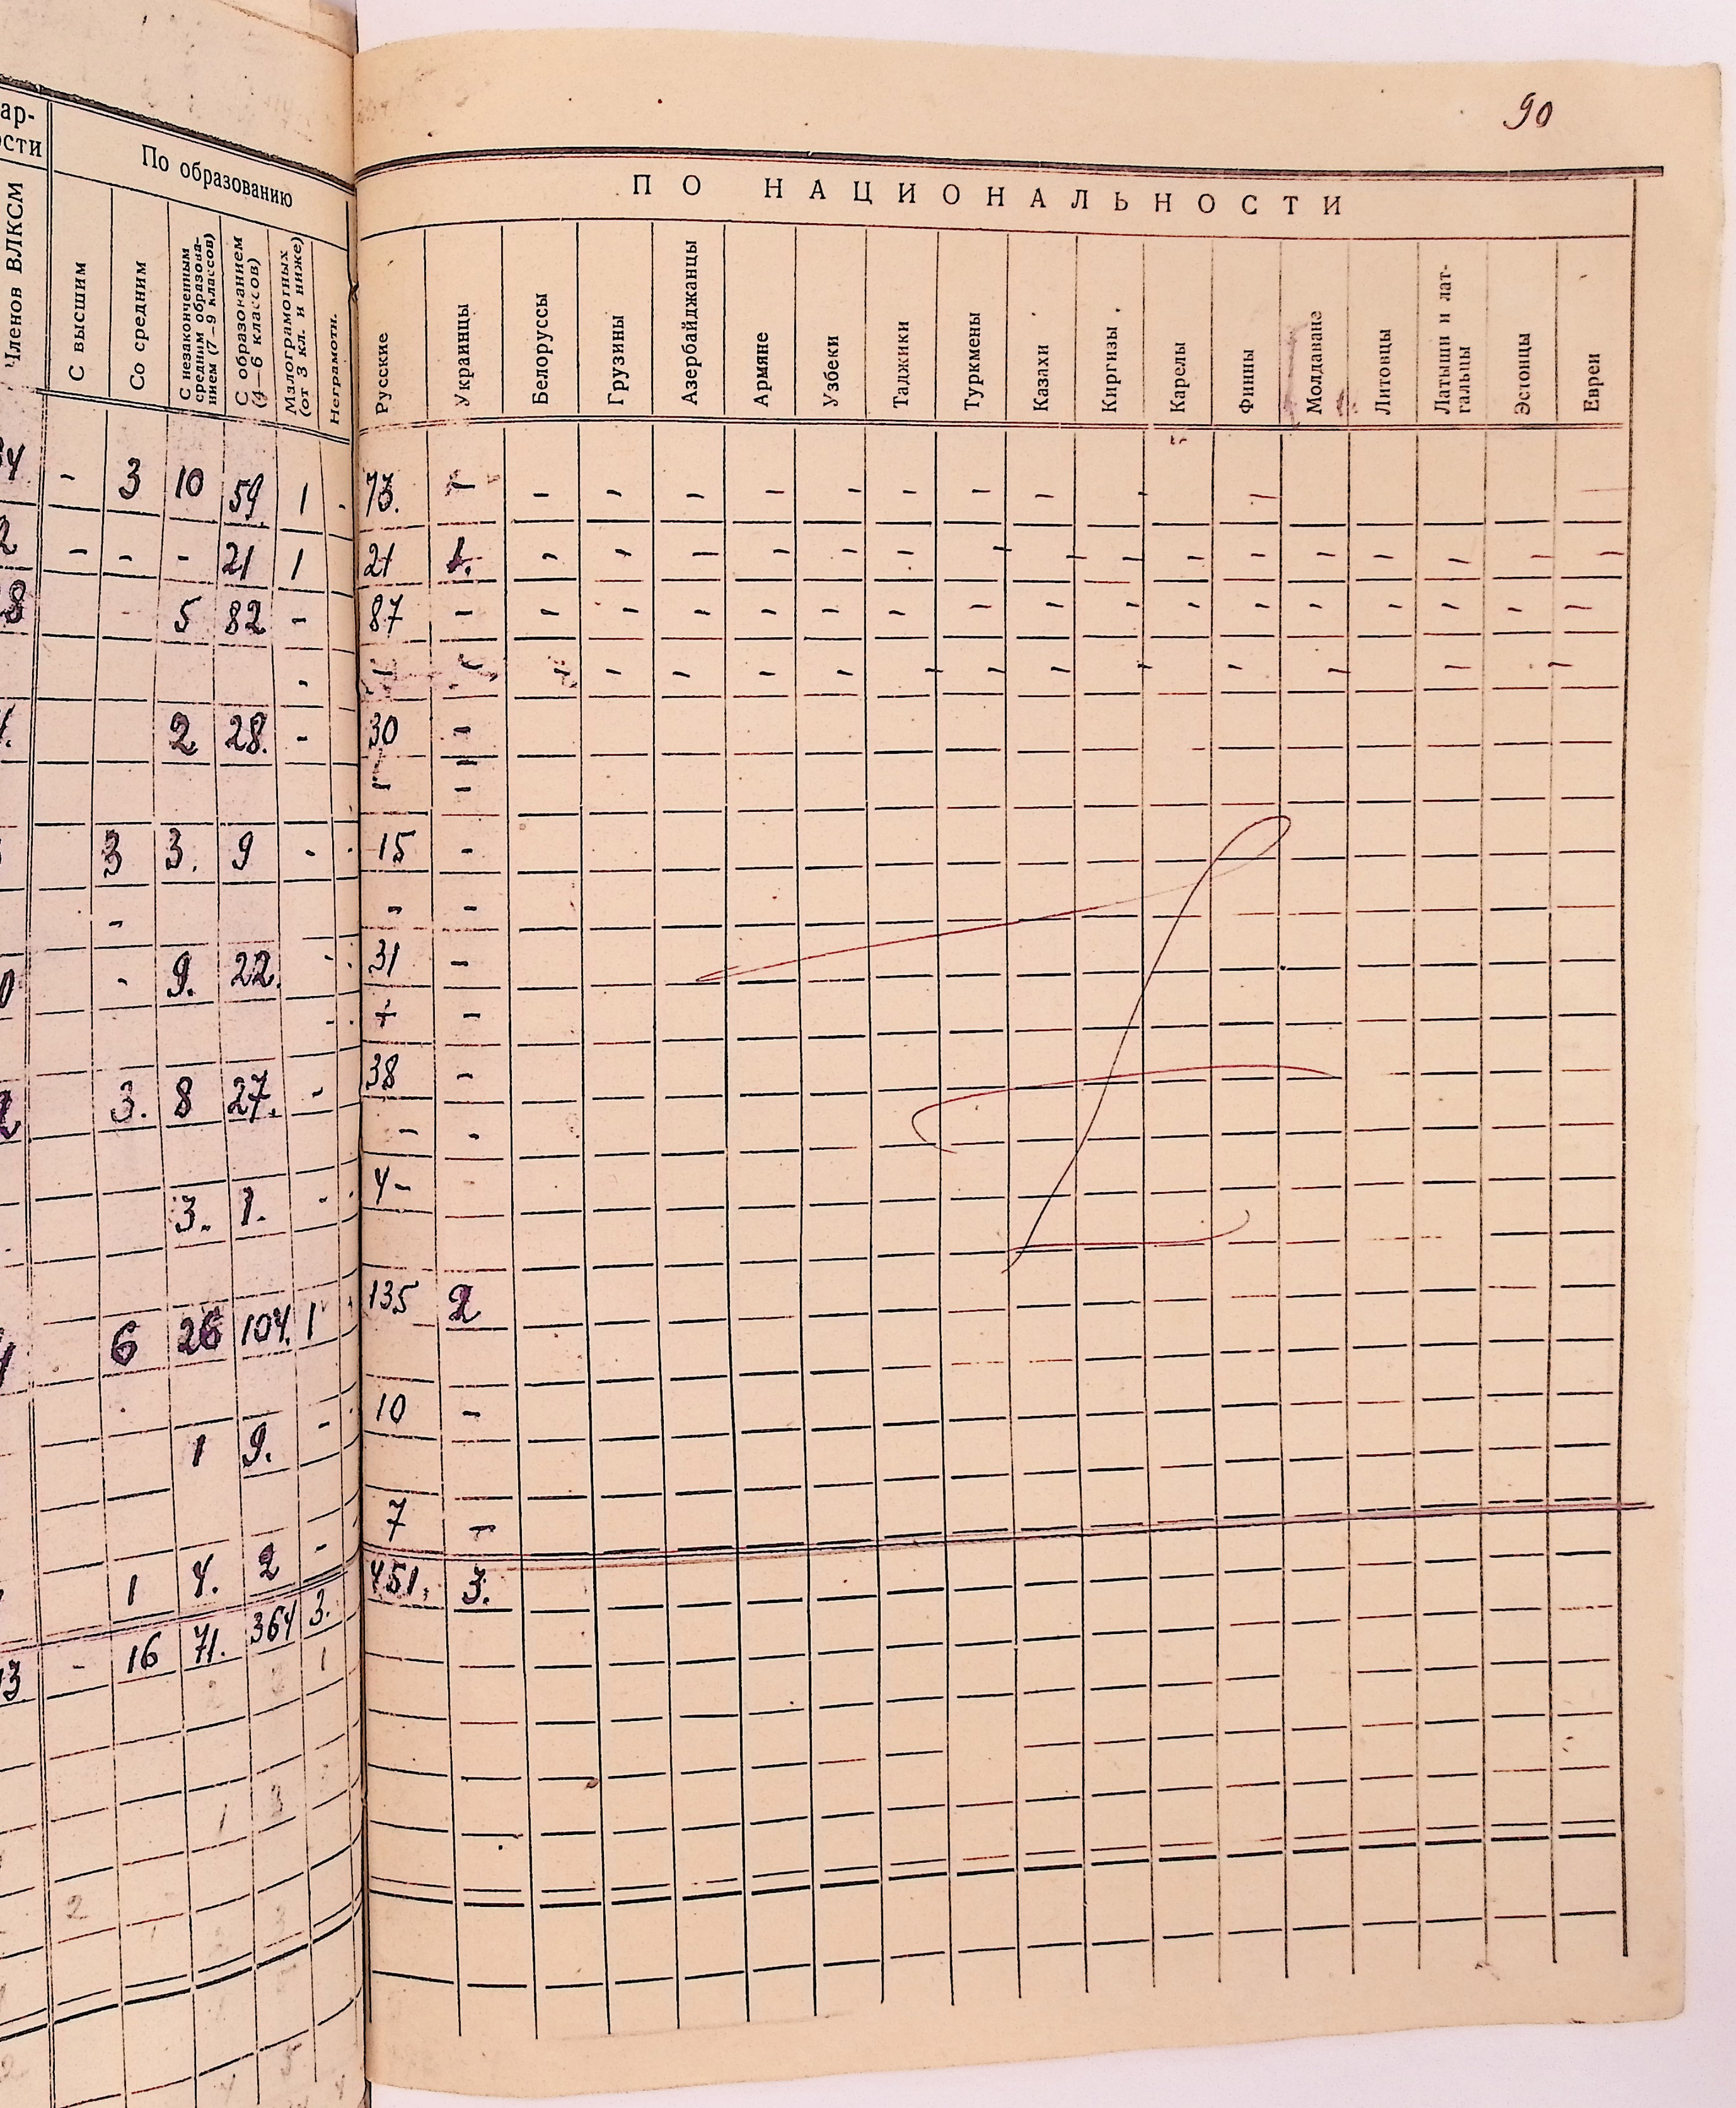 90
По образованию
ПО НАЦИОНАЛЬНОСТИ
Членов ВЛКСМ
С высшим
Со средним
С незаконченным средним образованием (7—9 классов)
С образованием (4—6 классов)
Малограмотных (от 3 кл. и ниже)
Неграмотн.
Русские
Украинцы
Белоруссы
Грузины
Азербайджанцы
Армяне
Узбеки
Таджики
Туркмены
Казахи
Киргизы
Карелы
Финны
Молдаване
Литовцы
Латыши и латгальцы
Эстонцы
Евреи
- 3 10 59. 1 - 73. - - - - - - - - - - -
- - - 21 1 21 1. - - - - - - - - - - - - - - - -
5 82 - 87 - - - - - - - - - - - - - - - - -
- - - - - - - - - - - - - - - -
2 28. - 30 -
- -
3 3. 9 - - 15 -
- - -
- 9. 22. - - 31 -
- - + -
3. 8 27. - 38 -
- -
3. 1. - - 4-
6 26 104. 1 135 2
1 9. - 10 -
1 4. 2 - 7 -
- 16 71. 364 3. 451. 3.
1